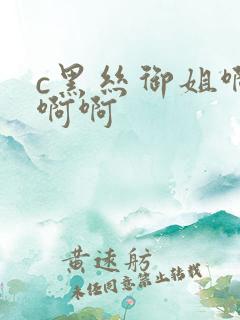 c黑丝御姐啊
啊啊
黄速舫
未经同意禁止转载